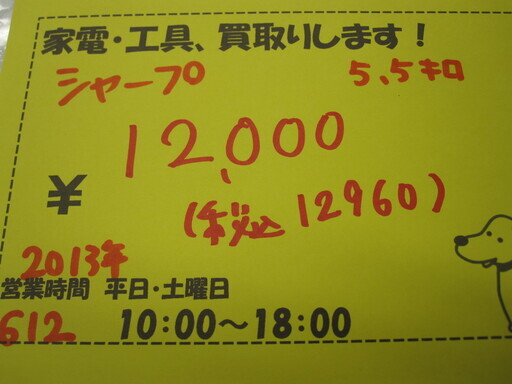 家電・工具、買取りします！
シャープ 5.5キロ
12,000
¥
(税込12960)
2013年
営業時間 平日・土曜日
612 10:00～18:00